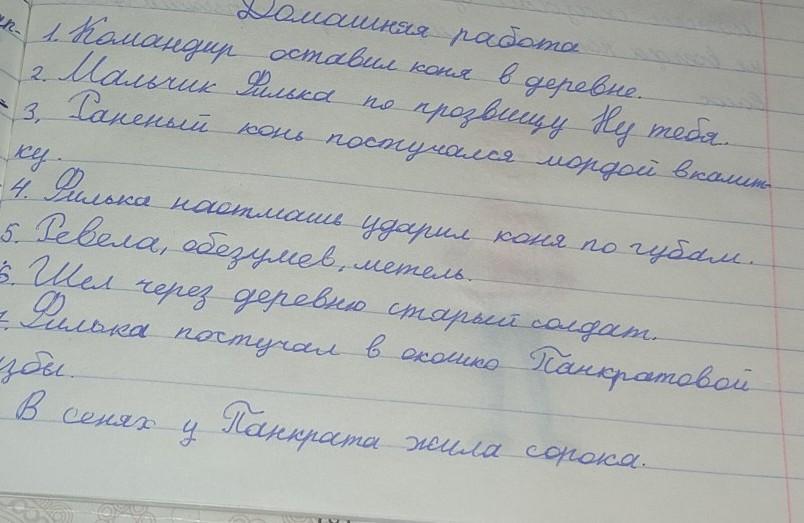 Домашняя работа
1. Командир оставил коня в деревне.
2. Мальчик Филька по прозвищу Ну тебя.
3. Раненый конь постучался мордой в калит-
ку.
4. Филька наотмашь ударил коня по губам.
5. Ревела, обезумев, метель.
6. Шел через деревню старый солдат.
7. Филька постучал в окошко Панкратовой
избы.
В сенях у Панкрата жила сорока.